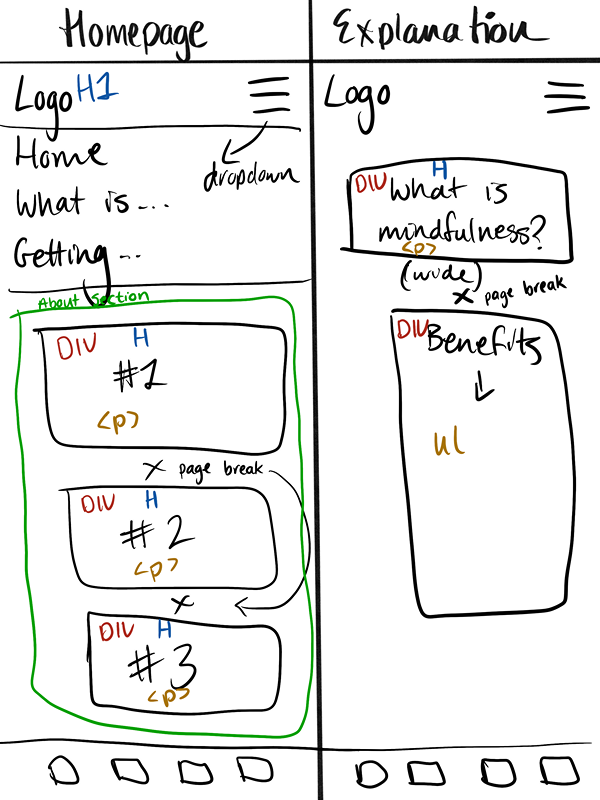 Homepage
Logo H1
Home
dropdown
What is ...
Getting ...
About Section
DIV H
#1
<p>
x page break
DIV H
#2
<p>
x
DIV H
#3
<p>
Explanation
Logo
DIV H
What is
mindfulness?
<p>
(wide)
x page break
DIV Benefits
ul